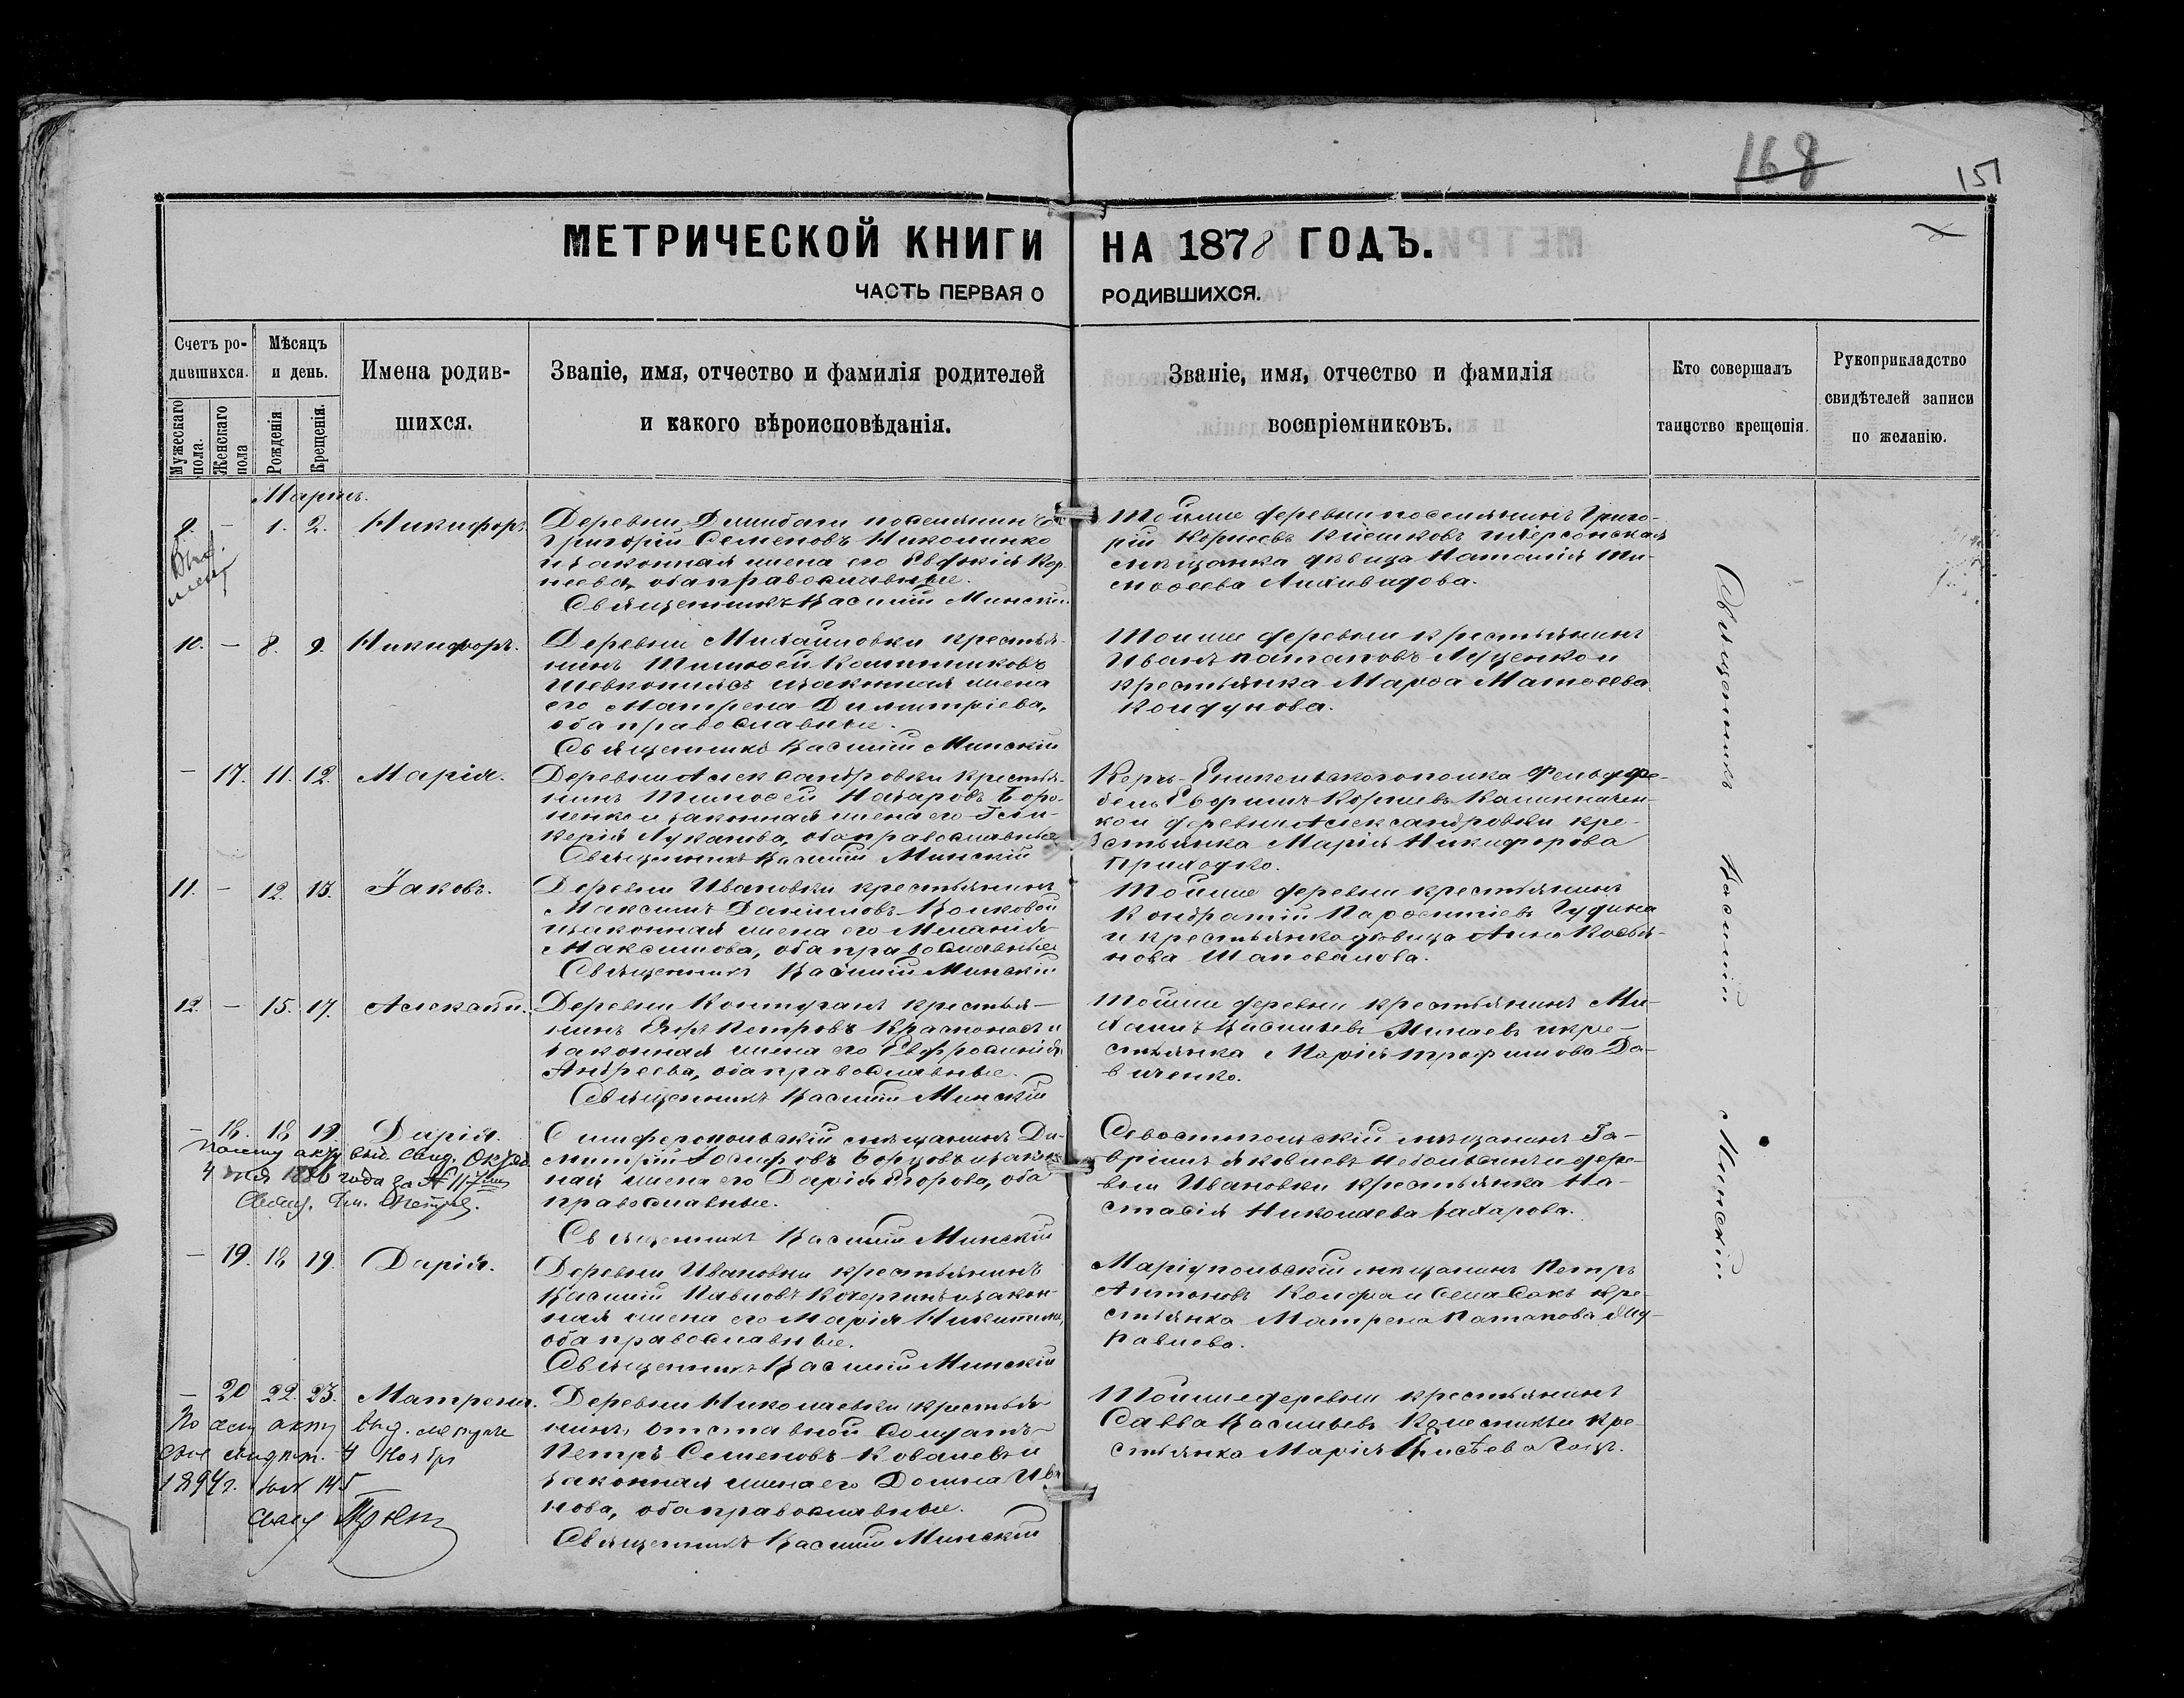 168
151
МЕТРИЧЕСКОЙ КНИГИ НА 1878 ГОДЪ.
ЧАСТЬ ПЕРВАЯ О РОДИВШИХСЯ.
Счетъ ро-
дившихся.
Мужескаго пола.
Женскаго пола
Мѣсяцъ
и день.
Рожденія
Крещенія.
Имена родив-
шихся.
Званіе, имя, отчество и фамилія родителей
и какого вѣроисповѣданія.
Званіе, имя, отчество и фамилія
воспріемниковъ.
Кто совершалъ
таинство крещенія.
Рукоприкладство
свидѣтелей записи
по желанію.
Мартъ.
9. – 1. 2. Никифоръ.
Деревни поселянинъ
Григорій Семеновъ Николенко
и законная жена его Евфимія Кор
неева, оба православные.
Священникъ Василій Минскій
Той же деревни поселянинъ Григо-
рій Корнеевъ и Херсонская
мѣщанка дѣвица Наталія Ти-
моѳеева
10. – 8. 9. Никифоръ.
Деревни Михайловки крестья-
нинъ Тимоѳей
и законная жена
его Матрена Димитріева,
оба православные.
Священникъ Василій Минскій
Той же деревни крестьянинъ
Иванъ Патаповъ Луценко и
крестьянка Марѳа Матѳеева
Колдунова.
– 17. 11. 12. Марія.
Деревни Александровки крестья-
нинъ Тимоѳей Назаровъ Боро-
ненко и законная жена его Гли-
керія Луканова, оба православные
Священникъ Василій Минскій
Керчь-Еникольскаго полка Фельдфе-
бель Корнеевъ Калиничен-
ко и деревни Александровки кре-
стьянка Марія Никифорова
Приходко.
11. – 12. 13. Іаковъ.
Деревни Ивановки крестьянинъ
Максимъ Даніиловъ Волковой
и законная жена его Меланія
Максимова, оба православные
Священникъ Василій Минскій
Той же деревни крестьянинъ
Кондратій Парѳентіевъ Гудина
и крестьянка дѣвица Анна Косья-
нова Шаповалова.
12. – 15. 17. Алексій.
Деревни Контуганъ крестья-
нинъ Егоръ Петровъ Красноносъ и
законная жена его Евфросинія
Андреева, оба православные.
Священникъ Василій Минскій
Той же деревни крестьянинъ Ми-
хаилъ Васильевъ Минаевъ и кре-
стьянка Марія Трофимова Да-
виченко.
– 18. 18 19 Дарія.
По сему акту выд. свид.
4 1886 года за №
Симферопольскій мѣщанинъ Ди-
митрій Іосифовъ Борцовъ и закон
ная жена его Дарія Егорова, оба
православные.
Священникъ Василій Минскій
Севостопольскій мѣщанинъ Га-
вріилъ Яковлевъ и дере-
вни Ивановки крестьянка На-
стасія Николаева Захарова.
– 19. 18 19. Дарія.
Деревни Ивановки крестьянинъ
Василій Павловъ Кочергинъ и закон-
ная жена его Марія Никитина,
оба православные.
Священникъ Василій Минскій
Маріупольскій мѣщанинъ Петръ
Антоновъ и кре-
стьянка Матрена Патапова Жу-
равлева.
– 20 22. 23. Матрена.
По сему акту выд. метриче
ское свидѣт. 4 Ноября
1894г. за № 145
Деревни Николаевки крестья-
нинъ, отставной солдатъ
Петръ Семеновъ Ковалевъ и
законная жена его Домна Ива
нова, оба православные.
Священникъ Василій Минскій
Той же деревни крестьянинъ
Савва Васильевъ Колесникъ и кре-
стьянка Марія
Священникъ Василій Минскій